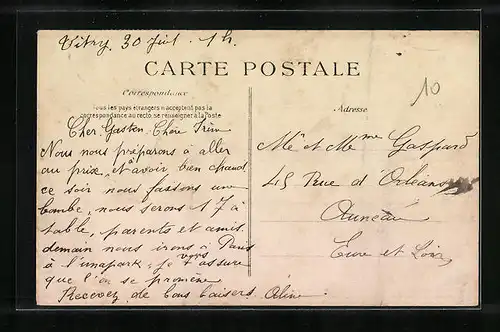 Vitry 30 Juil. 1h.
CARTE POSTALE
10
Correspondance
Tous les pays étrangers n'acceptent pas la
correspondance au recto. se renseigner à la Poste
Adresse
Cher Gaston. Chère
Nous nous préparons à aller
au prix, et à avoir bien chaud
ce soir nous faisons une
bombe, nous serons 17 à
table, parents et amis.
demain nous irons à Paris
à l'unapark, je vous assure
que l'on se promène
Recevez de bons baisers Aline
Mr et Mme Gaspard
45 Rue d'Orléans
Auneau
Eure et Loir